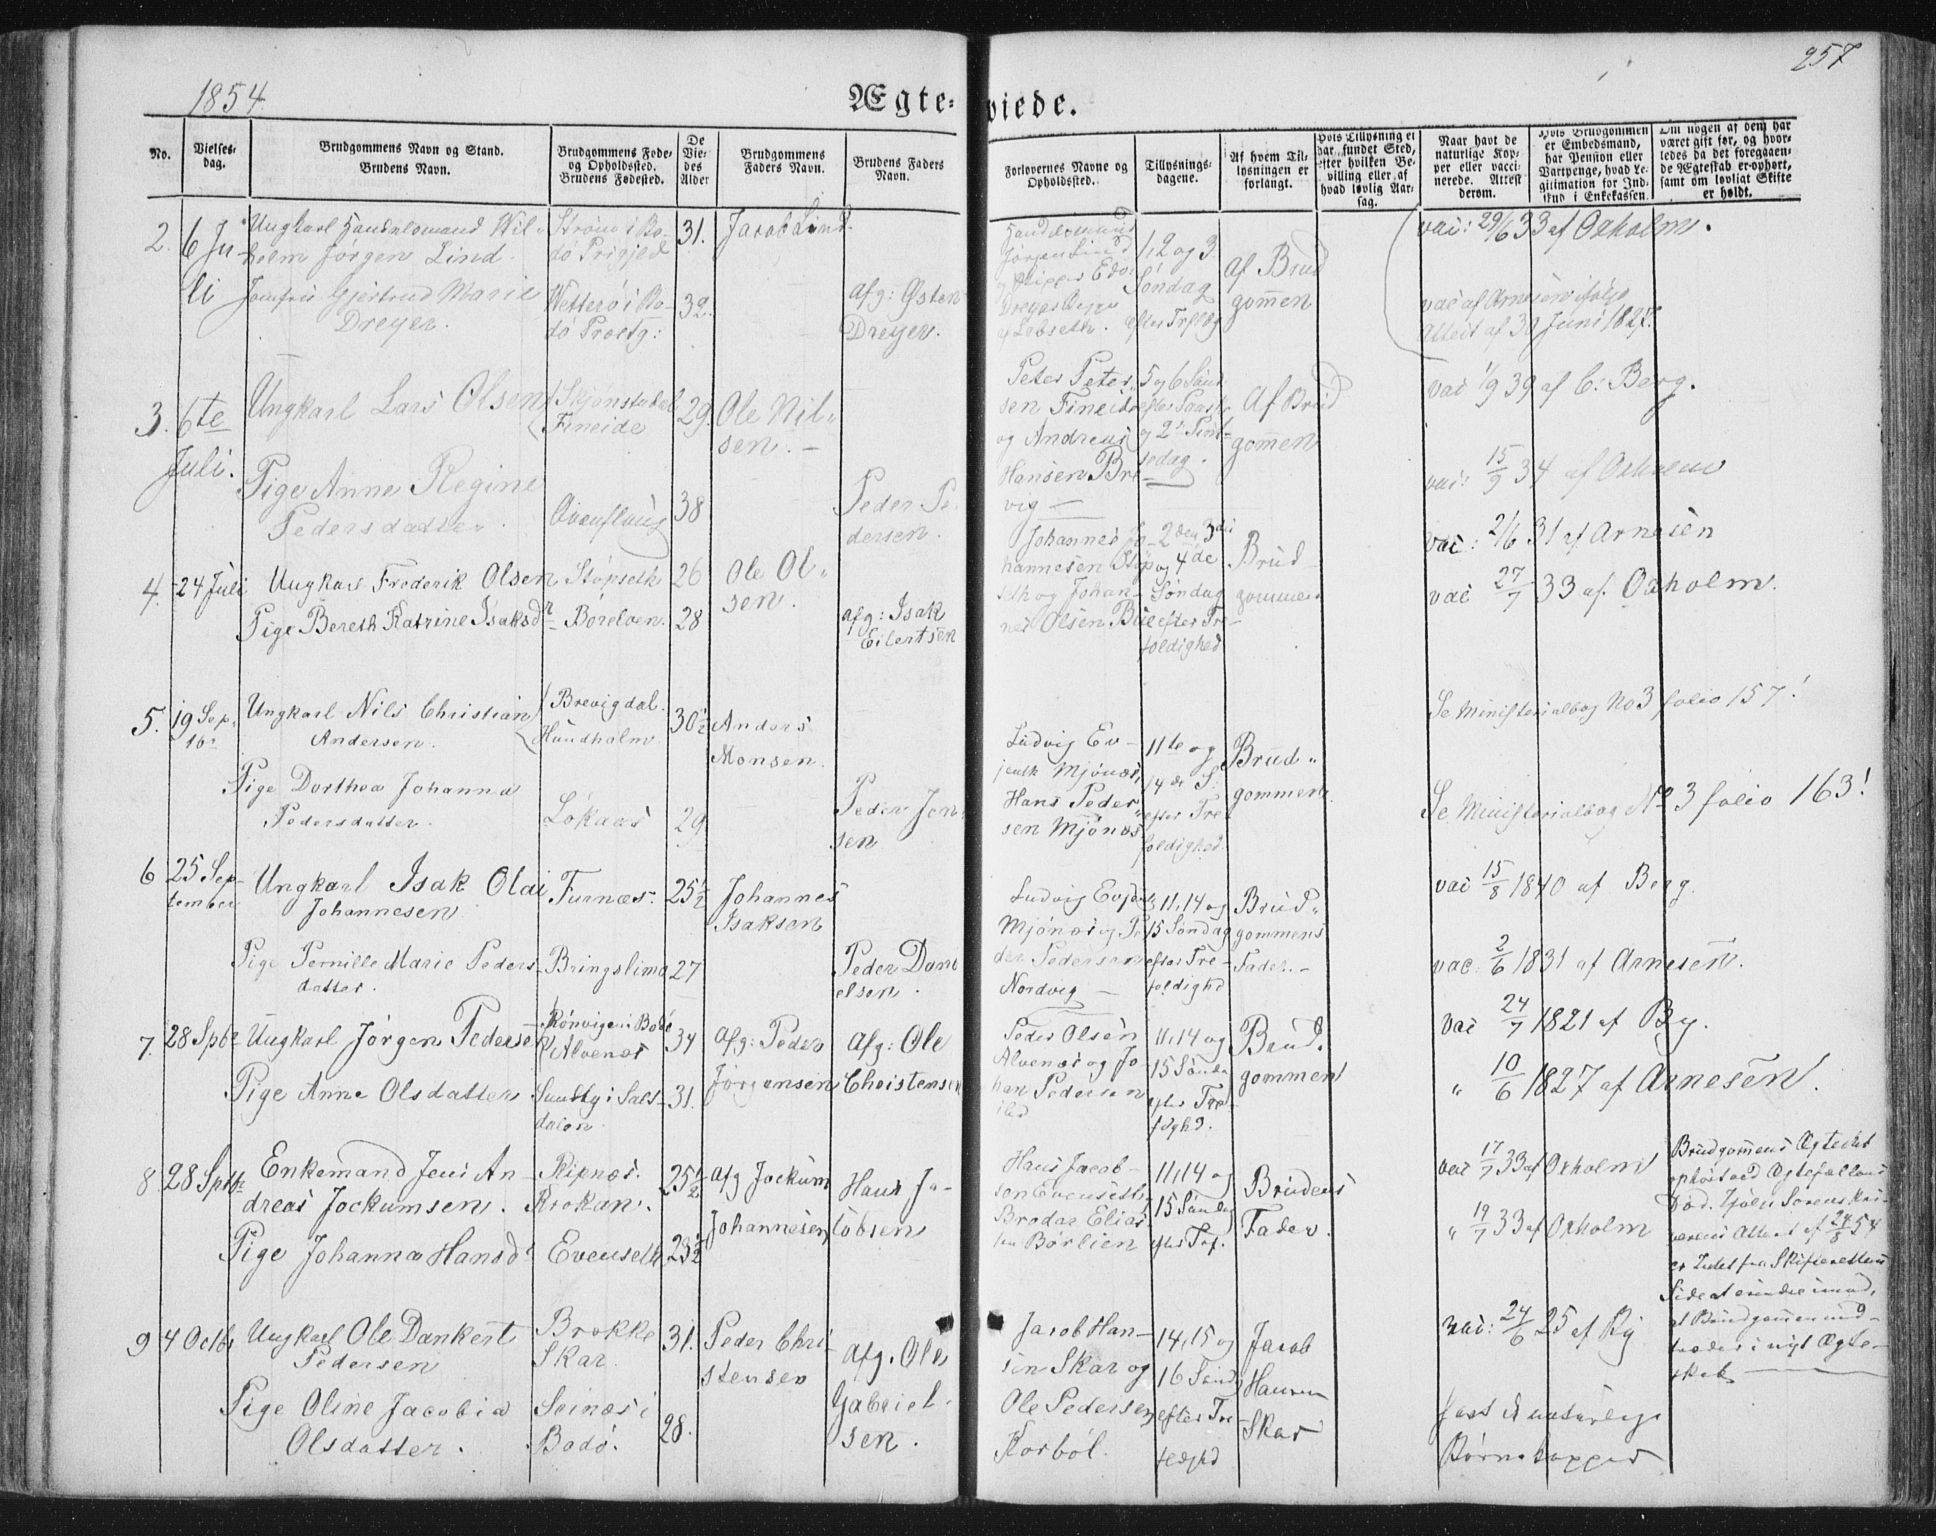 1854.
Ægte=viede.
257
No.
Vielses-dag.
Brudgommens Navn og Stand.
Brudens Navn.
Brudgommens Føde-
og Opholdssted.
Brudens Fødested.
De
Vie-
des
Alder
Brudgommens
Faders Navn.
Brudens Faders
Navn.
Forlovernes Navne og
Opholdssted.
Tillysnings-
dagene.
Af hvem Til-
lysningen er
forlangt.
Hvis Tillysning ei
har fundet Sted,
efter hvilken Be-
villing eller af
hvad lovlig Aar-
sag.
Naar havt de
naturlige Kop-
per eller vacci-
nerede. Attest
derom.
Hvis Brudgommen
er Embedsmand,
har Pension eller
Vartpenge, hvad Le-
gitimation for Ind-
skud i Enkekassen.
Om nogen af dem har
været gift før, og hvor-
ledes da det foregaaen-
de Ægteskab er ophørt,
samt om lovligt Skifte
er holdt.
2. 6 Ju-
li
Ungkarl Handelsmand Wil-
helm Jørgen Lind.
Jomfru Gjertrud Marie
Dreyer.
Strøm i Bo-
dø Prgjld
Wetterø i Bo-
dø Præstg:
31.
32.
Jacob Lind.
Afg: Østen
Dreyer.
Handelsmand
Jørgen Lind
Dreyer
1, 2 og 3
Søndag
efter
Af Brud
gommen
vac: 29/6 33 af Oxholm.
vac af Arnesen ifølge
Attest af 30 Juni 1827.
3. 6te
Juli.
Ungkarl Lars Olsen
Pige Anne Regine
Pedersdatter.
Skjønstadal
Fineide
29.
38
Ole Nil-
sen.
Peder Pe-
dersen.
Peter Peter-
sen Fineide
og Andreas
Hansen Bre-
vig
5 og 6 Sønd
efter Paaske
og 2n Pint-
sedag.
Af Brud
gommen
vac 1/9 39 af C: Berg.
vac: 15/9 34 af Oxholm
4. 24 Juli
Ungkarl Frederik Olsen
Pige Bereth Katrine Isaksdr
Støpseth
Børelven.
26
28
Ole Ol-
sen.
afg: Isak
Eilertsen
Johannes Jo-
hannesen Støp
seth og Johan-
nes Olsen Bue
2den 3die
og 4de
Søndag
efter Tre-
foldighed
Brud
gommen
vac: 2/6 31 af Arnesen
vac 27/7 33 af. Oxholm.
5. 19 Sep.
Ungkarl Nils Christian
Andersen.
Pige Dorthea Johanna
Pedersdatter.
Brevigdal.
Hundholm
Løkaas
30½
29
Anders
Monsen.
Peder Jen-
sen
Ludvig Ev-
jenth Mjønæs,
Hans Peder
sen Mjønæs
11te og
14de S.
efter Tre
foldighed.
Brud-
gommen.
Se Ministerialbog No 3 folio 157!
Se Ministerialbog No 3 folio 163!
6 25 Sep-
tember
Ungkarl Isak Olai
Johannesen
Pige Pernille Marie Peders-
datter.
Furnæs.
Bringslima
25½
27
Johannes
Isaksen
Peder Dani
elsen.
Ludvig Evjen
Mjønæs og Pe
der Pedersen
Nordvig
11, 14 og
15 Søndag
efter Tre-
foldighd
Brud-
gommens
Fader.
vac 15/8 1840 af Berg.
vac: 2/6 1831 af Arnesen.
7. 28 Spbr
Ungkarl Jørgen Pederse
Pige Anne Olsdatter
Rønvigen i Bodø
Alvenæs
Sundby i Sals-
dalen.
34
31.
Afg: Peder
Jørgensen
Afg: Ole
Christensen
Peder Olsen
Alvenæs og Jo
han Pedersen
11, 14 og
15 Sønda
efter Tre
Brud.
gommen
vac 24/7 1821 af By.
" 10/6 1827 af Arnesen.
8. 28 Sptbr
Enkemand Jens An-
dreas Jockumsen.
Pige Johanna Hansd:
Ripnæs.
Krokan.
Evenseth
25½
23½
Afg Jockum
Johannesen
Hans Ja-
cobsen
Hans Jacob-
sen Evenseth
Brodae Elias
sen Børlien
11, 14 og
15 Sønda
efter Tref.
Brudens
Fader.
vac 17/7 33 af Oxholm
" 19/7 33 af Oxholm
Brudgomens Ægteskb
ophørt ved Ægtefællens
Død. Ifølge Sorenskri-
verens Attest af 24/8 54
er Intet fra Skifterettens
Side at erindre imod,
at Brudgomen ind-
træder i nyt Ægte-
skab
9 4 Octbr
Ungkarl Ole Dankert
Pedersen
Pige Oline Jacobia
Olsdatter.
Brokke
Skar.
Seinæs i
Bodø.
31.
28.
Peder Chri-
stensen
Afg. Ole
Gabriel-
sen.
Jacob Han-
sen Skar og
Ole Pedersen
Kosbøl.
14, 15 og
16 Sønd
efter Tre
Jacob
Hansen
Skar
vac: 24/6 25 af By
havt d naturlige
Børnekopper